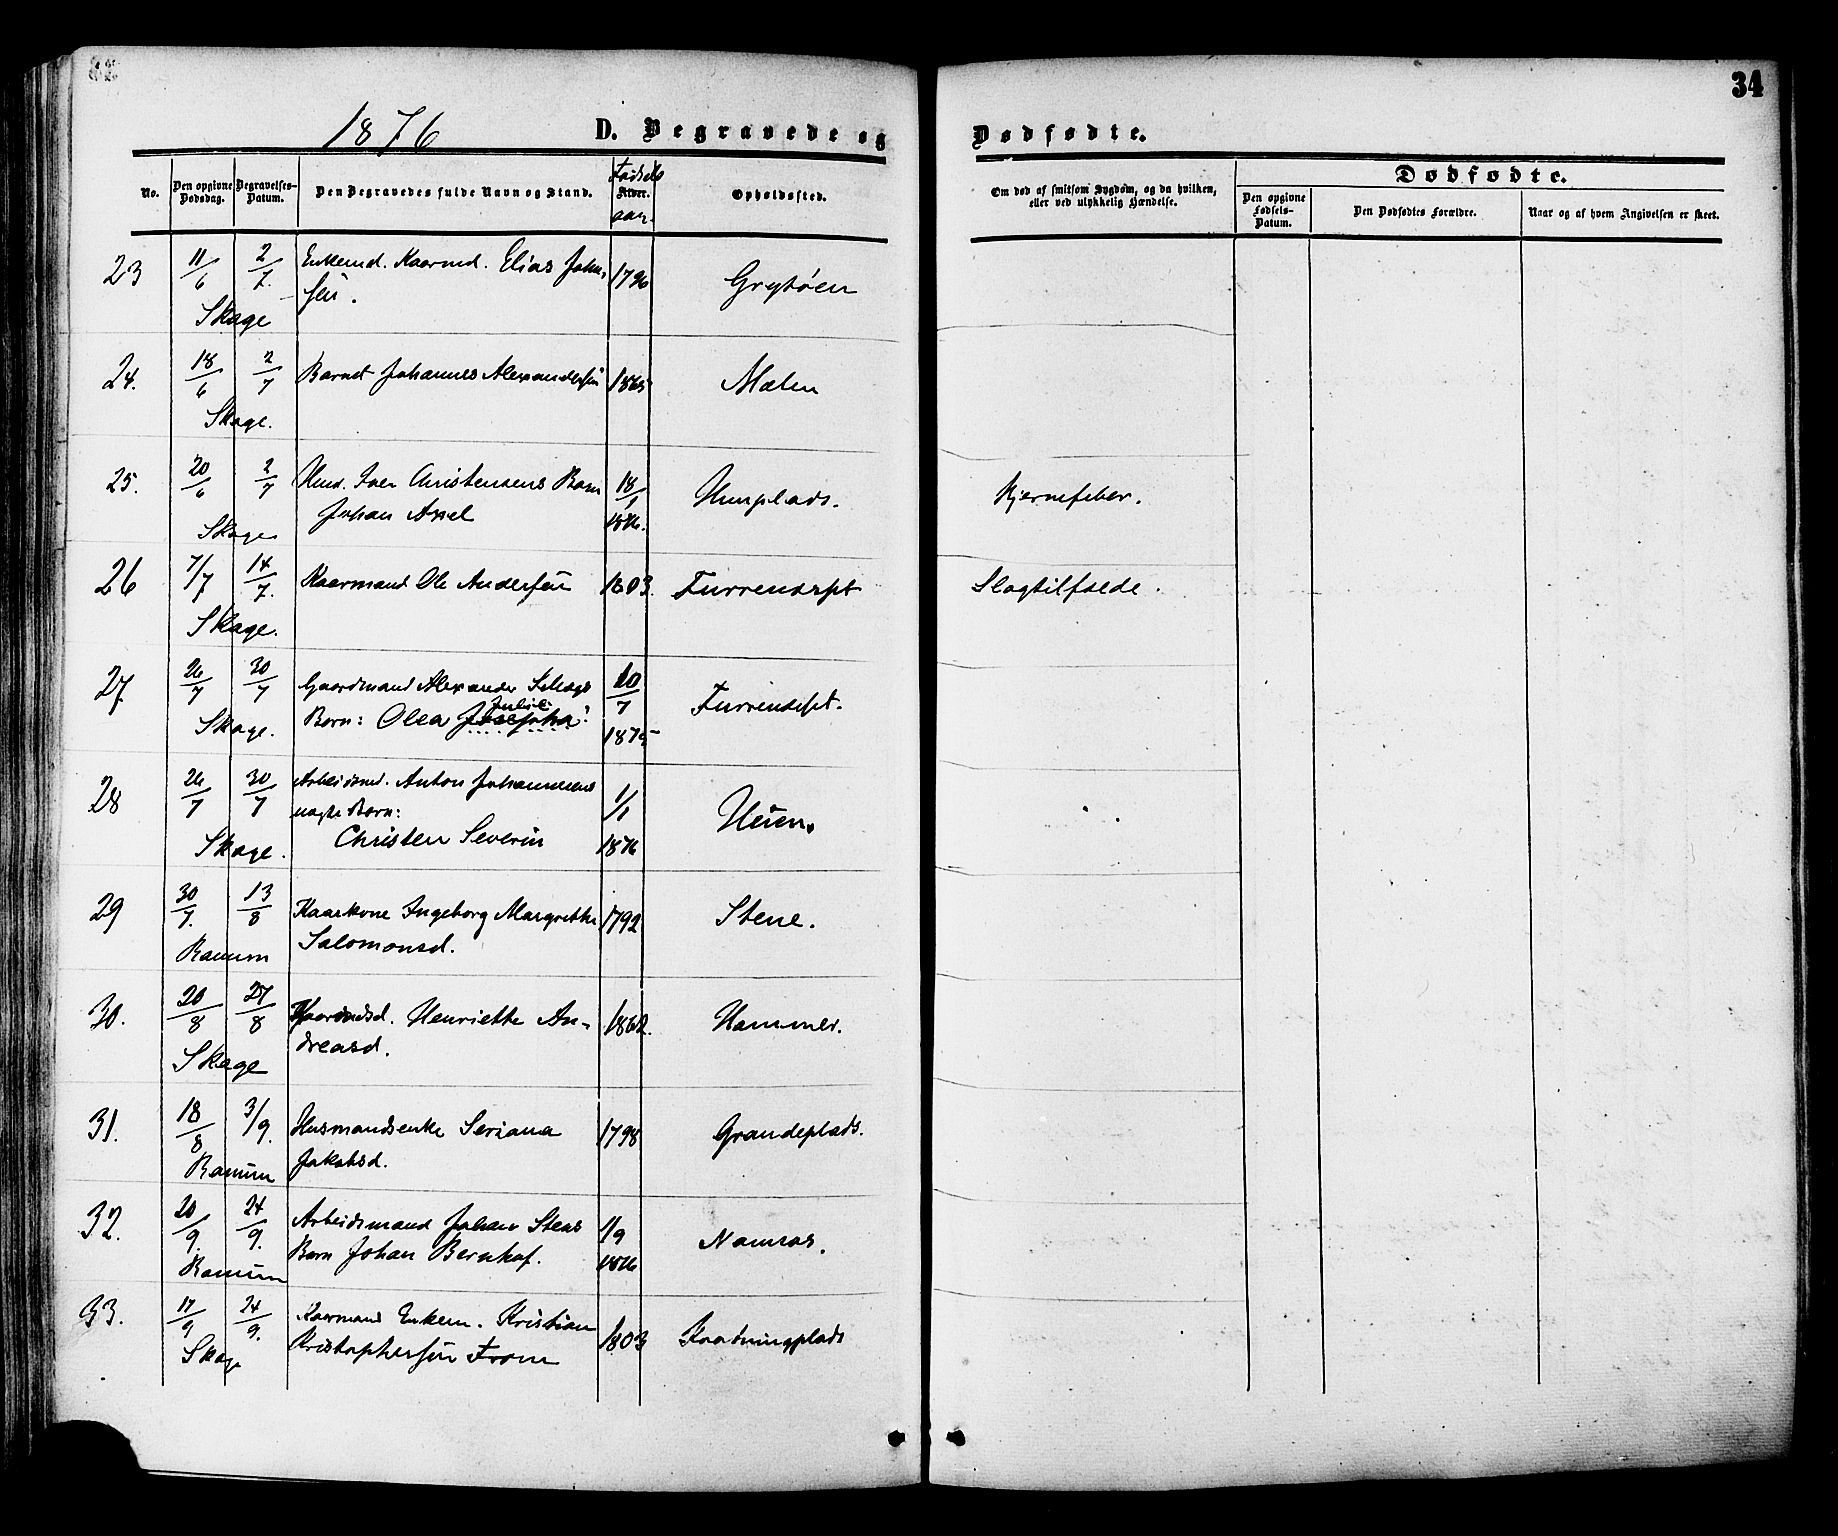 34
1876 D. Begravede og Dødfødte.
No. Den opgivne Dødsdag. Begravelses-Datum. Den Begravedes fulde Navn og Stand. Fødsels Alder. aar. Opholdssted. Om død af smitsom Sygdom, og da hvilken, eller ved ulykkelig Hændelse. Dødfødte.
Den opgivne Fødsels-Datum. Den Dødfødtes Forældre. Naar og af hvem Angivelsen er skeet.
23 11/6 2/7. Enkemd. Kaarmd. Elias Johan- 1796 Grytøen
sen.
Skage
24. 18/6 2/7 Barnet Johannes Alexandersen 1865 Mælen
Skage.
25. 20/6 2/7 Husd. Iver Christensens Barn 18/1 1876. Hunplads. Hjernefeber.
Johan Axel
Skage
26 7/7 14/7. Kaarmand Ole Andersen 1803. Furrendspt Slagtilfælde.
Skage.
27. 26/7 30/7 Gaardmand Alexander Schages 20/7 1875 Furrendspt.
Barn: Olea Josepha Julie
Skage.
28 26/7 30/7 Arbeidsmd. Anton Johannesens 1/1 1876 Heien.
uægte Barn:
Christen Severin
Skage.
29 30/7. 13/8 Kaarkone Ingeborg Margrethe 1792 Stene.
Salomonsd.
Ranum
30. 20/8 27/8 Gaardmdsd. Henriette An- 1862. Hammer.
dreasd.
Skage
31. 18/8 3/9. Husmandsenke Seriana 1798 Grandeplads.
Jakobsd.
Ranum
32. 20/9. 24/9. Arbeidsmand Johan Stens 1/9 1876 Namsos.
Barn Johan Bernhof.
Ranum
33. 17/9 24/9. Kaarmand Enkem. Kristian 1803
Kristophersen From
Skage